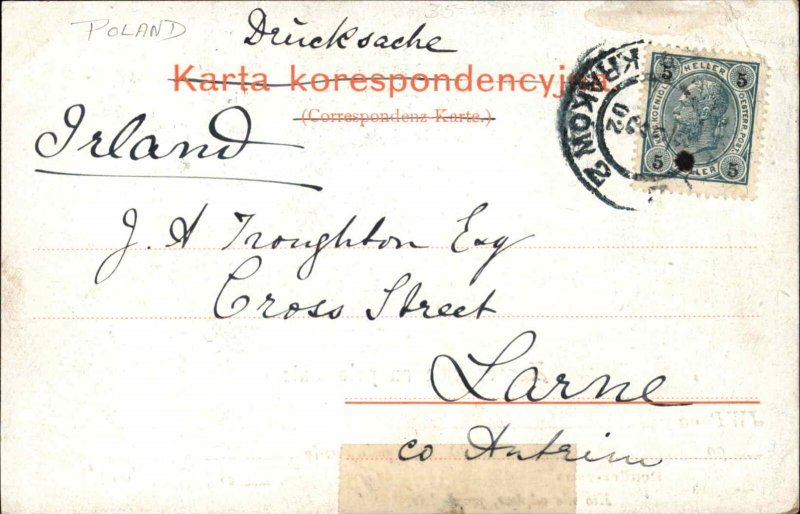 POLAND
Drucksache
Karta korespondencyjna.
(Correspondenz-Karte.)
Irland
J. A Troughton Esq
Cross Street
Larne
co Antrim
KRAKÓW 2
02
5 HELLER 5
KAIS. KOENIGL. OESTERR. POST
5 HELLER 5